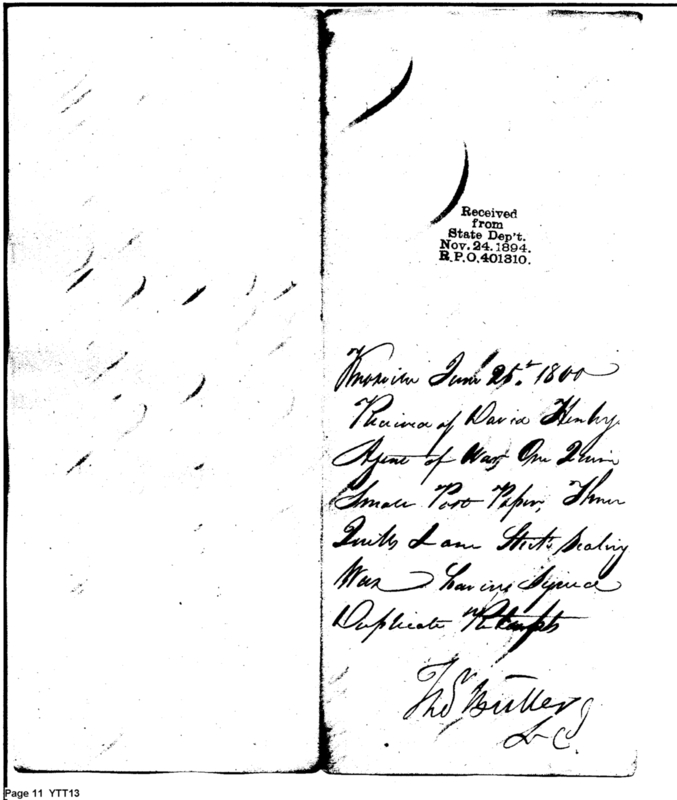 Received
from
State Dep't.
Nov. 24. 1894.
R.P.O. 401310.
Knoxville June 25th 1800
Received of David Henley
Agent of War One Quire
Small Post Paper, Three
Quills & one Stick Sealing
Wax having Signed
Duplicate Receipts
Thos Butler
Lt C.
Page 11 YTT13